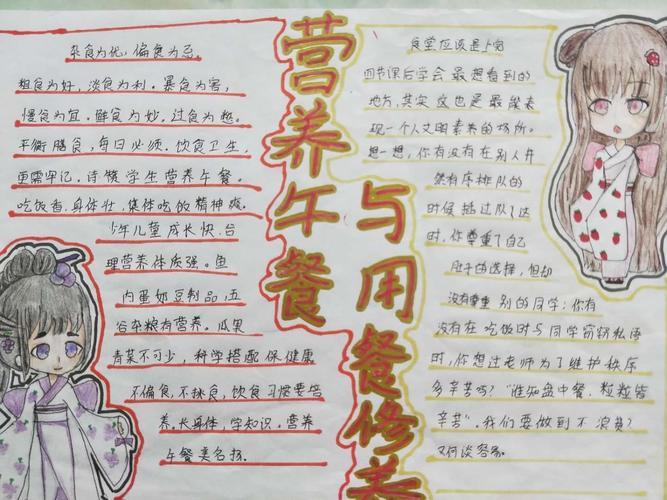 营养午餐
与用餐修养
杂食为优,偏食为忌
粗食为好,淡食为利。暴食为害,
慢食为宜。鲜食为妙,过食为愁。
平衡膳食,每日必须。饮食卫生,
更需牢记。诗情学生营养午餐。
吃饭香,身体壮,集体吃饭精神爽。
少年儿童成长快,合
理营养体质强。鱼
肉蛋奶豆制品,五
谷杂粮有营养。瓜果
青菜不可少,科学搭配保健康
不偏食,不挑食,饮食习惯要培
养。长身体,学知识。营养
午餐美名扬。
食堂应该是上完
四节课后学会最想看到的
地方,其实这也是最能表
现一个人文明素养的场所。
想一想,你有没有在别人井
然有序排队的
时候插过队?这
时,你尊重了自己
肚子的选择,但却
没有尊重别的同学;你有
没有在吃饭时与同学窃窃私语
时,你想过老师为了维护秩序
多辛苦吗?"谁知盘中餐,粒粒皆
辛苦"。我们要做到不浪费?
又何谈容易。